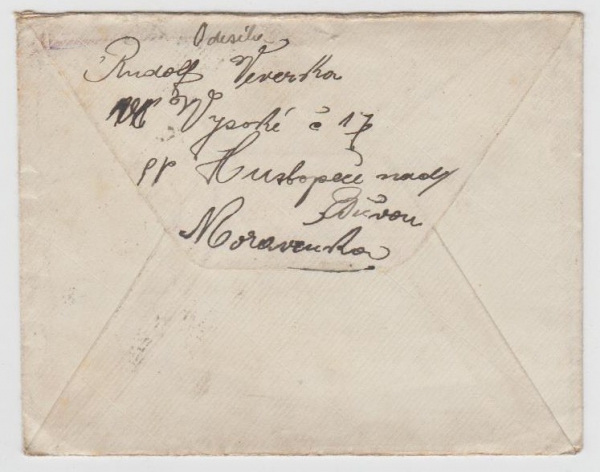 Odesíla
Rudolf Veverka
Vysoké č 17
pp Hustopeče nad
Bečvou
Moravenka